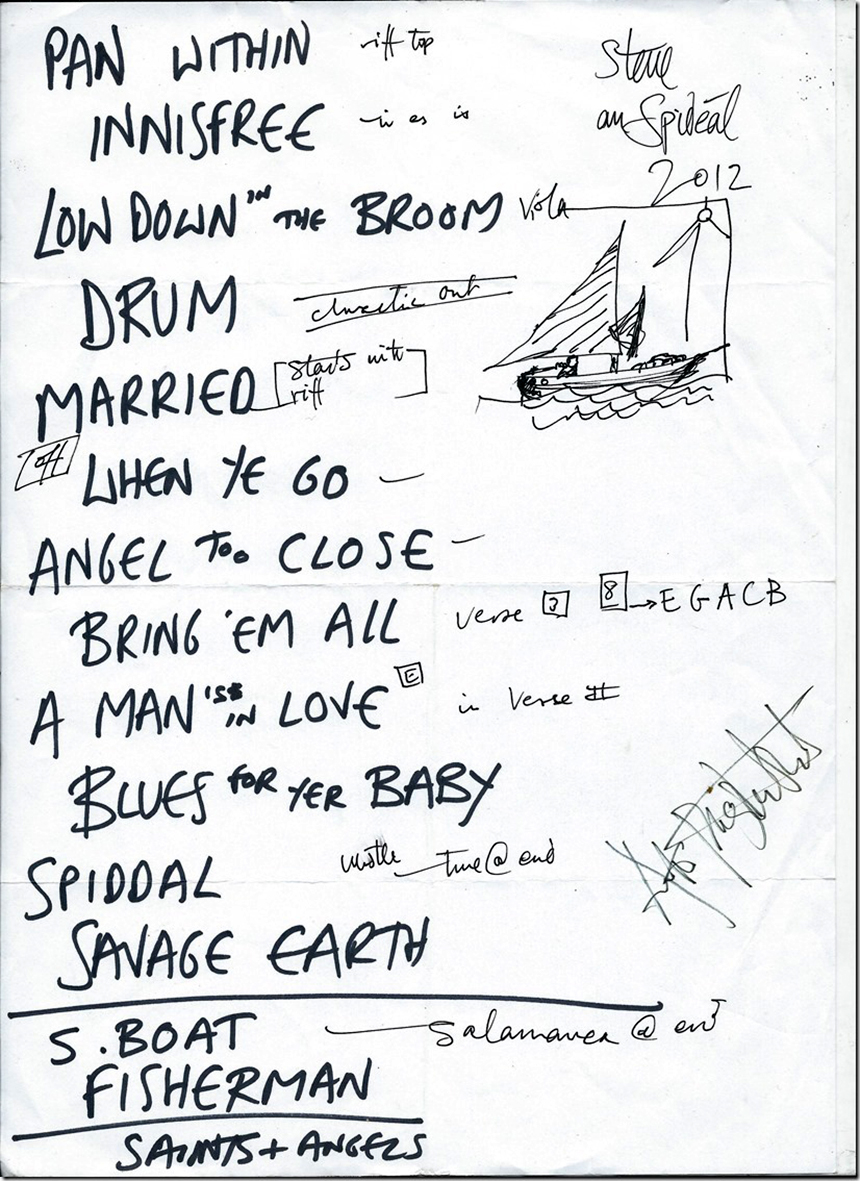 PAN WITHIN riff top
INNISFREE in as is
Steve
an Spidéal
2012
LOW DOWN IN THE BROOM Viola
DRUM out
MARRIED Starts with
riff
off
WHEN YE GO —
ANGEL TOO CLOSE —
BRING 'EM ALL verse 3 8 → E G A C B
A MAN IS IN LOVE E in Verse II
BLUES FOR YER BABY
SPIDDAL whistle — tune @ end
SAVAGE EARTH
S. BOAT — Salamanca @ end
FISHERMAN
SAINTS + ANGELS